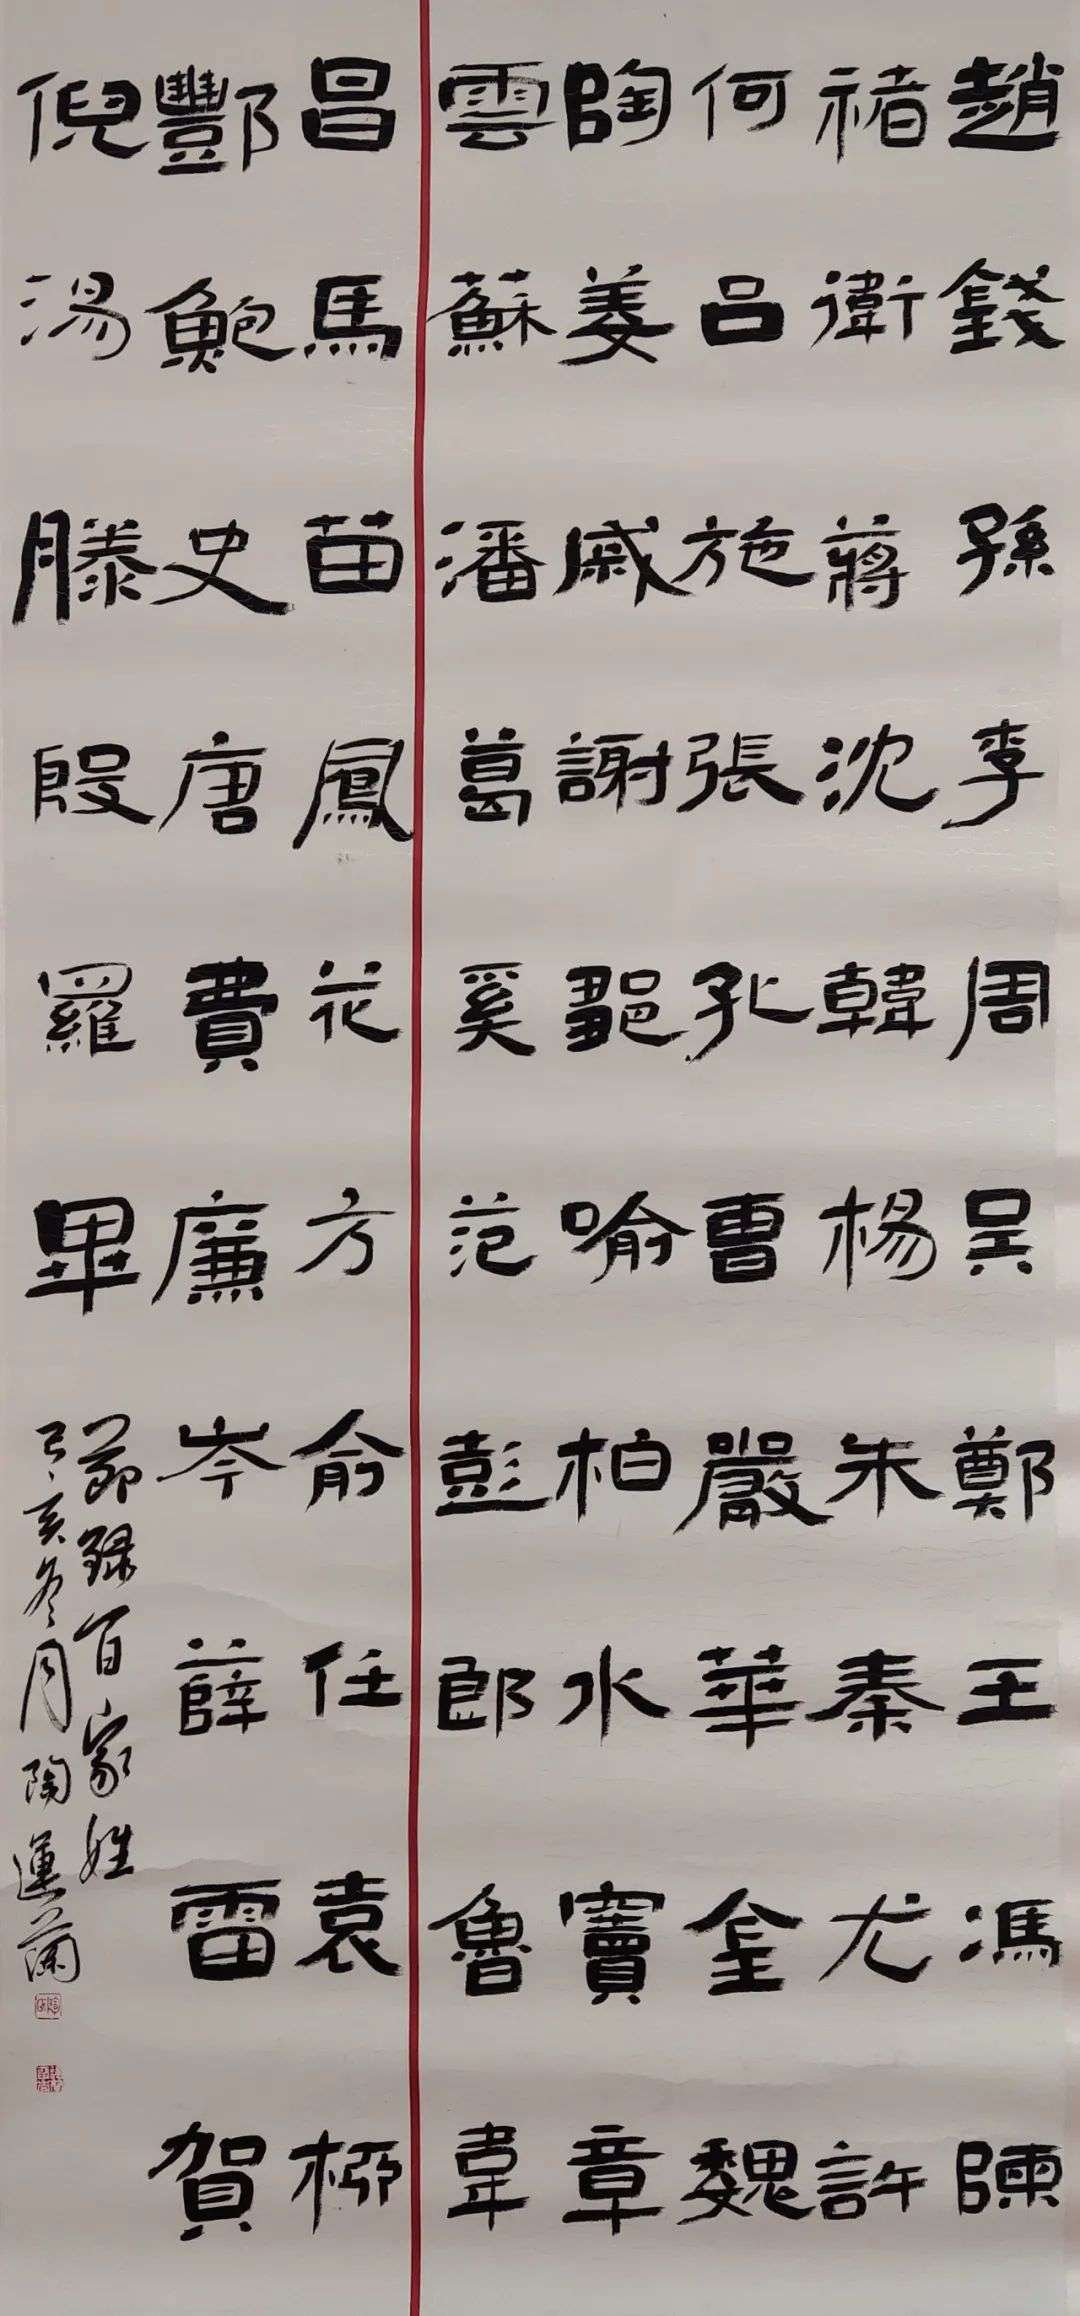 趙錢孫李周吳鄭王馮陳
褚衛蔣沈韓楊朱秦尤許
何呂施張孔曹嚴華金魏
陶姜戚謝鄒喻柏水竇章
雲蘇潘葛奚范彭郎魯韋
昌馬苗鳳花方俞任袁柳
酆鮑史唐費廉岑薛雷賀
倪湯滕殷羅畢
節錄百家姓
己亥冬月陶運蘭